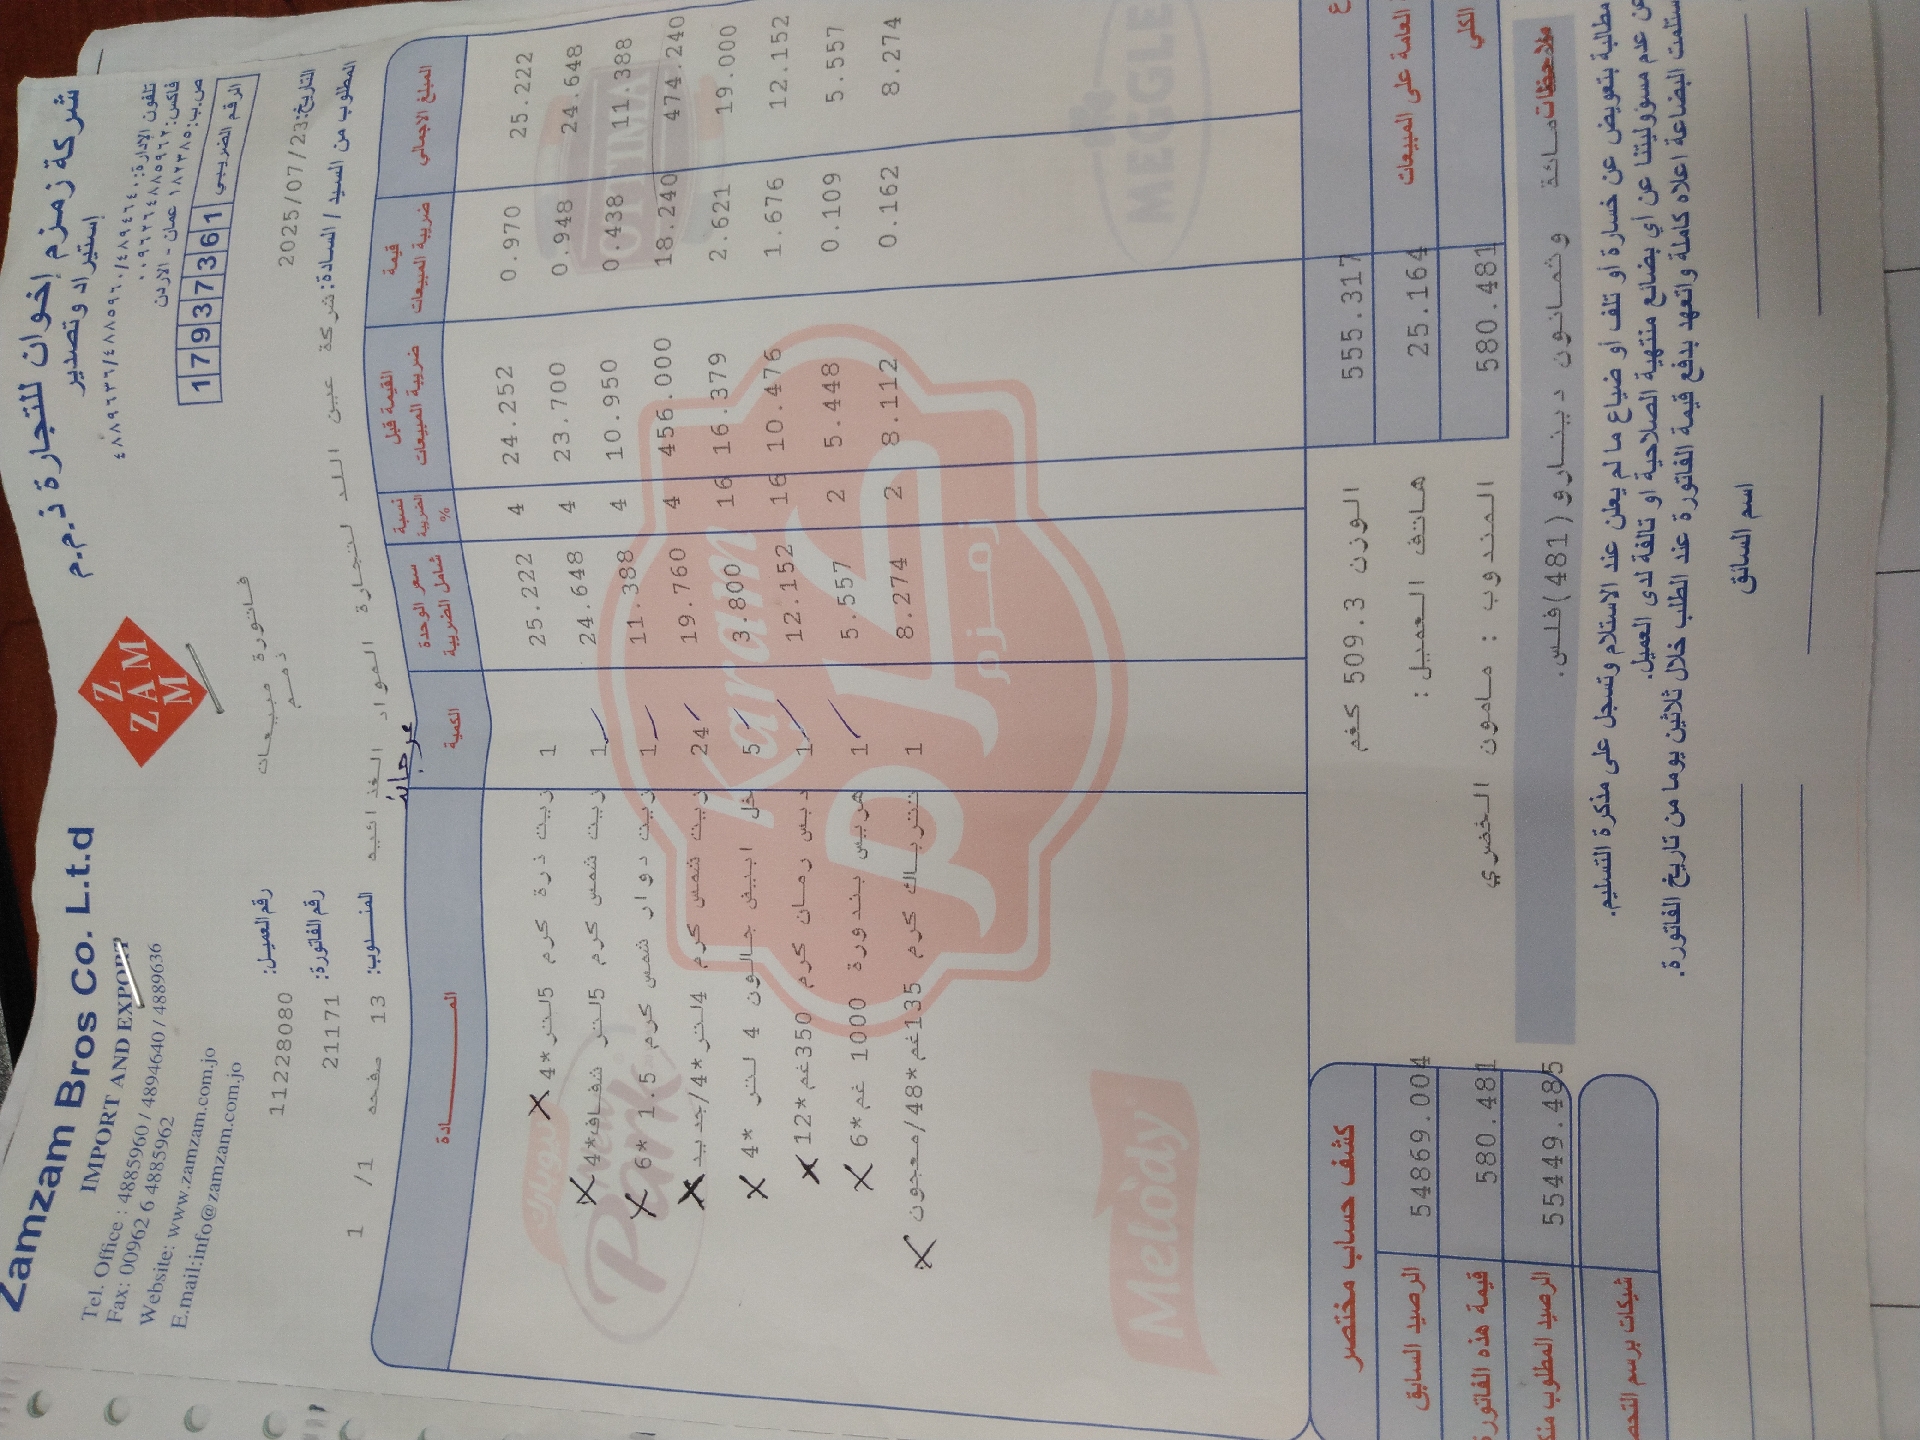 Zamzam Bros Co. L.t.d
IMPORT AND EXPORT
Tel. Office : 4885960 / 4894640 / 4889636
Fax: 00962 6 4885962
Website: www.zamzam.com.jo
E.mail:info@zamzam.com.jo
Z
ZAM
M
شركة زمزم إخوان للتجارة ذ.م.م
إستيراد وتصدير
تلفون الإدارة: ٤٨٨٩٦٣٦/٤٨٨٥٩٦٠/٤٨٩٤٦٤٠
فاكس: ٠٠٩٦٢٦٤٨٨٥٩٦٢
عمان - الاردن
الرقم الضريبي 17937361
فاتورة مبيعات
ذمم
رقم العميل: 11228080
رقم الفاتورة: 21171
المندوب: 13 صفحه 1/ 1
التاريخ: 2025/07/23
المطلوب من السيد / السادة: شركة عين الد لتجارة المواد الغذائيه
مرجانة
المـــــــادة الكمية سعر الوحدة شامل الضريبة نسبة الضريبة % القيمة قبل ضريبة المبيعات قيمة ضريبة المبيعات المبلغ الاجمالي
زيت ذرة كرم 5لتر*4 1 25.222 4 24.252 0.970 25.222
زيت شمس كرم 5لتر شفاف*4 1 24.648 4 23.700 0.948 24.648
زيت دوار شمس كرم 1.5 *6 1 11.388 4 10.950 0.438 11.388
زيت شمس كرم 4لتر*4/جديد 24 19.760 4 456.000 18.240 474.240
خل ابيض جالون 4 لتر *4 5 3.800 16 16.379 2.621 19.000
دبس رمان كرم 350غم*12 1 12.152 16 10.476 1.676 12.152
هريس بندورة 1000 غم*6 1 5.557 2 5.448 0.109 5.557
تترباك كرم 135غم*48/معجون 1 8.274 2 8.112 0.162 8.274
Karam
زمزم
OPTIMA
MEGGLE
New Park
نيوبارك
Melody
الوزن 509.3 كغم
هاتف العميل :
المندوب : مامون الخضري
555.317
العامة على المبيعات 25.164
الكلي 580.481
كشف حساب مختصر
الرصيد السابق 54869.004
قيمة هذه الفاتورة 580.481
الرصيد المطلوب 55449.485
شيكات برسم
ملاحظات
مائة وثمانون دينارو(481)فلس.
مطالبة بتعويض عن خسارة أو تلف أو ضياع ما لم يعلن عند الاستلام وتسجل على مذكرة التسليم.
عن عدم مسؤوليتنا عن أي بضائع منتهية الصلاحية أو تالفة لدى العميل.
استلمت البضاعة اعلاه كاملة واتعهد بدفع قيمة الفاتورة عند الطلب خلال ثلاثين يوما من تاريخ الفاتورة.
اسم السائق